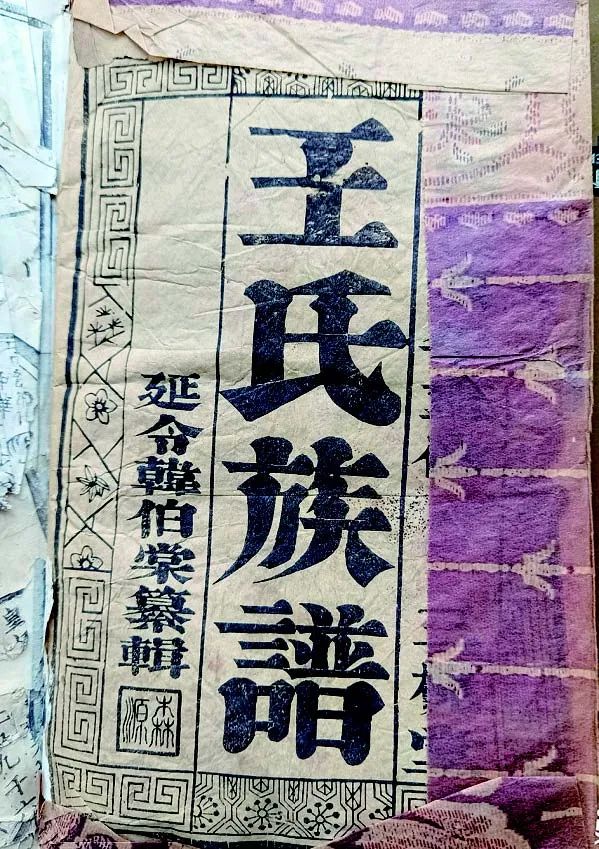 王氏族譜
延令韓伯棠纂輯
森源